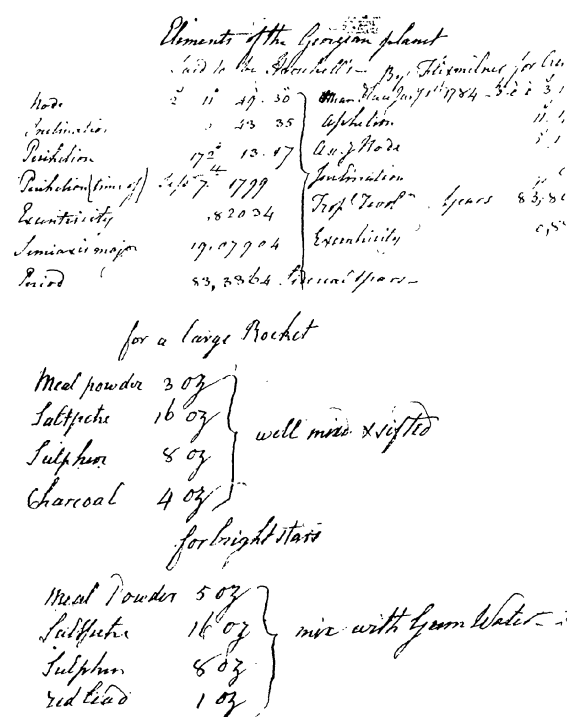 Elements of the Georgian planet
Said to be Herschell's - By Fixmilner for
Node 2 11 49. 50
Inclination 43 35
Perihelion 172 13. 17
Perihelion (time of) Sept 7 1799
Excentricity ,82034
Semiaxis major 19.07904
Period 83,3364 Sidereal Years -
Mean Place Jan 1st 1784
Aphelion 11.
As. g Node
Inclination
Trop.l Revol.n Years 83,
Excentricity 0,
for a large Rocket
Meal powder 3 oz
Saltpetre 16 oz
Sulphur 8 oz
Charcoal 4 oz
well mixd & sifted
for bright stars
Meal Powder 5 oz
Saltpetre 16 oz
Sulphur 8 oz
red lead 1 oz
mix with Gum Water -